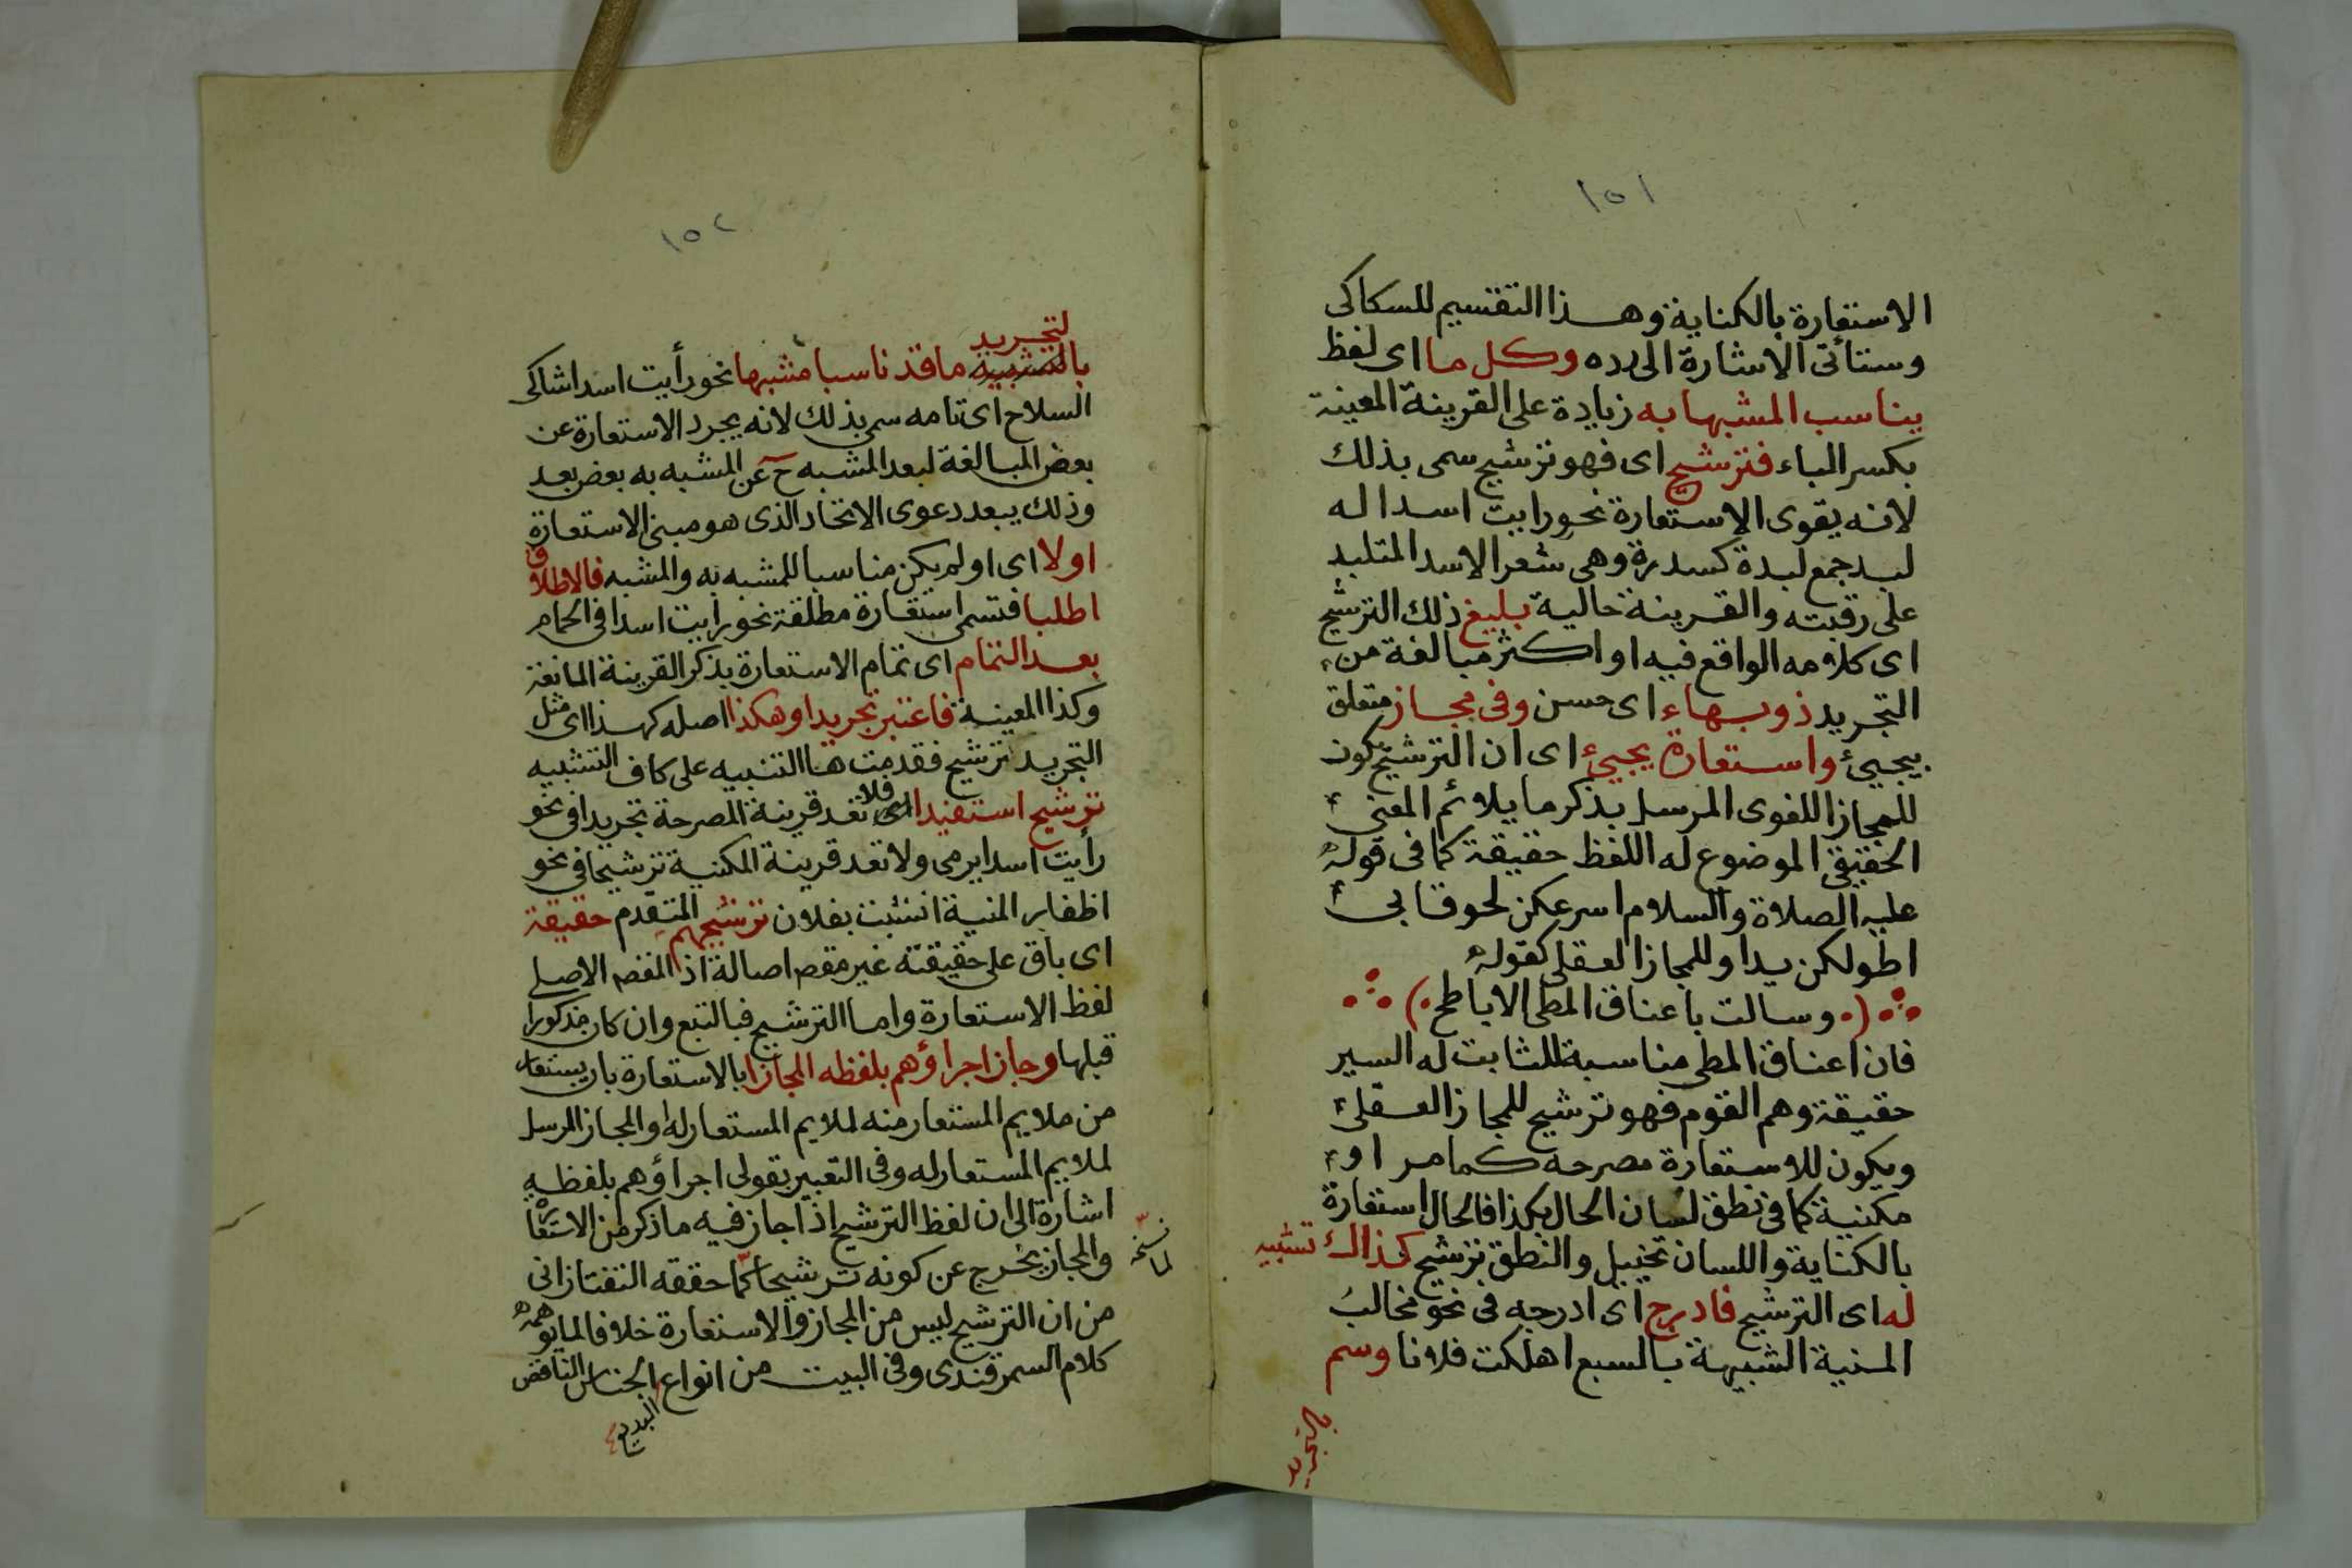 ١٥١
الاستعارة بالكناية وهذا التقسيم للسكاكى
وستأتى الاشارة الى رده وكل ما اى لفظ
يناسب المشبها به زيادة على القرينة المعينة
بكسر الياء فترشيح اى فهو ترشيح سمى بذلك
لانه يقوى الاستعارة نحو رايت اسدا له
لبد جمع لبدة كسدرة وهى شعر الاسد المتلبد
على رقبته والقرينة حالية بليغ ذلك الترشيح
اى كلامه الواقع فيه او اكثر مبالغة من
التجريد ذو بهاء اى حسن وفى مجاز متعلق
بيجيئ واستعارة يجيئ اى ان الترشيح يكون
للمجاز اللغوى المرسل بذكر ما يلائم المعنى
الحقيقى الموضوع له اللفظ حقيقة كما فى قوله
عليه الصلاة والسلام اسرعكن لحوقا بى
اطولكن يدا وللمجاز العقلى كقوله
(وسالت باعناق المطى الاباطح)
فان اعناق المطى مناسبة للثابت له السير
حقيقة وهم القوم فهو ترشيح للمجاز العقلى
ويكون للاستعارة مصرحة كما مر او
مكنية كما فى نطق لسان الحال بكذا فالحال استعارة
بالكناية واللسان تخييل والنطق ترشيح كذاك تشبيه
له اى الترشيح فادرج اى ادرجه فى نحو مخالب
المنية الشبيهة بالسبع اهلكت فلانا وسم
بالتجريد
١٥٢
لتجريد
بالتشبيه ما قد ناسبا مشبها نحو رأيت اسدا شاكى
السلاح اى تامه سمى بذلك لانه يجرد الاستعارة عن
بعض المبالغة لبعد المشبه ح عن المشبه به بعض بعد
وذلك يبعد دعوى الاتحاد الذى هو مبنى الاستعارة
اولا اى او لم يكن مناسبا للمشبه به والمشبه فالاطلاق
اطلبا فتسمى استعارة مطلقة نحو رايت اسدا فى الحمام
بعد التمام اى تمام الاستعارة بذكر القرينة المانعة
وكذا المعينة فاعتبر تجريدا وهكذا اصله كهذا اى مثل
التجريد ترشيح فقدمت ها التنبيه على كاف التشبيه
ترشيح استفيدا اى فلا تعد قرينة المصرحة تجريدا فى نحو
رأيت اسدا يرمى ولا تعد قرينة المكنية ترشيحا فى نحو
اظفار المنية انشبت بفلان ترشيحهم المتقدم حقيقة
اى باق على حقيقته غير مقص اصالة اذ المقص الاصلى
لفظ الاستعارة واما الترشيح فبالتبع وان كان مذكورا
قبلها وجاز اجراؤهم بلفظه المجازا بالاستعارة بان يستعار
من ملايم المستعار منه لملايم المستعار له او المجاز المرسل
لملايم المستعار له وفى التعبير بقولى اجراؤهم بلفظه
اشارة الى ان لفظ الترشيح اذا جاز فيه ما ذكر من الاستعارة
والمجاز يخرج عن كونه ترشيحا كما حققه التفتازانى
لما نسخه
من ان الترشيح ليس من المجاز والاستعارة خلافا لما يوهمه
كلام السمرقندى وفى البيت من انواع الجناس الناقص
البديع